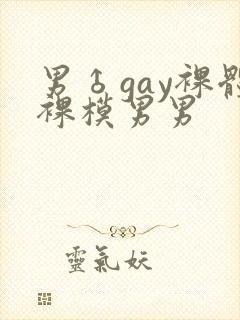 男♂gay裸體
裸模男男
靈氣妖